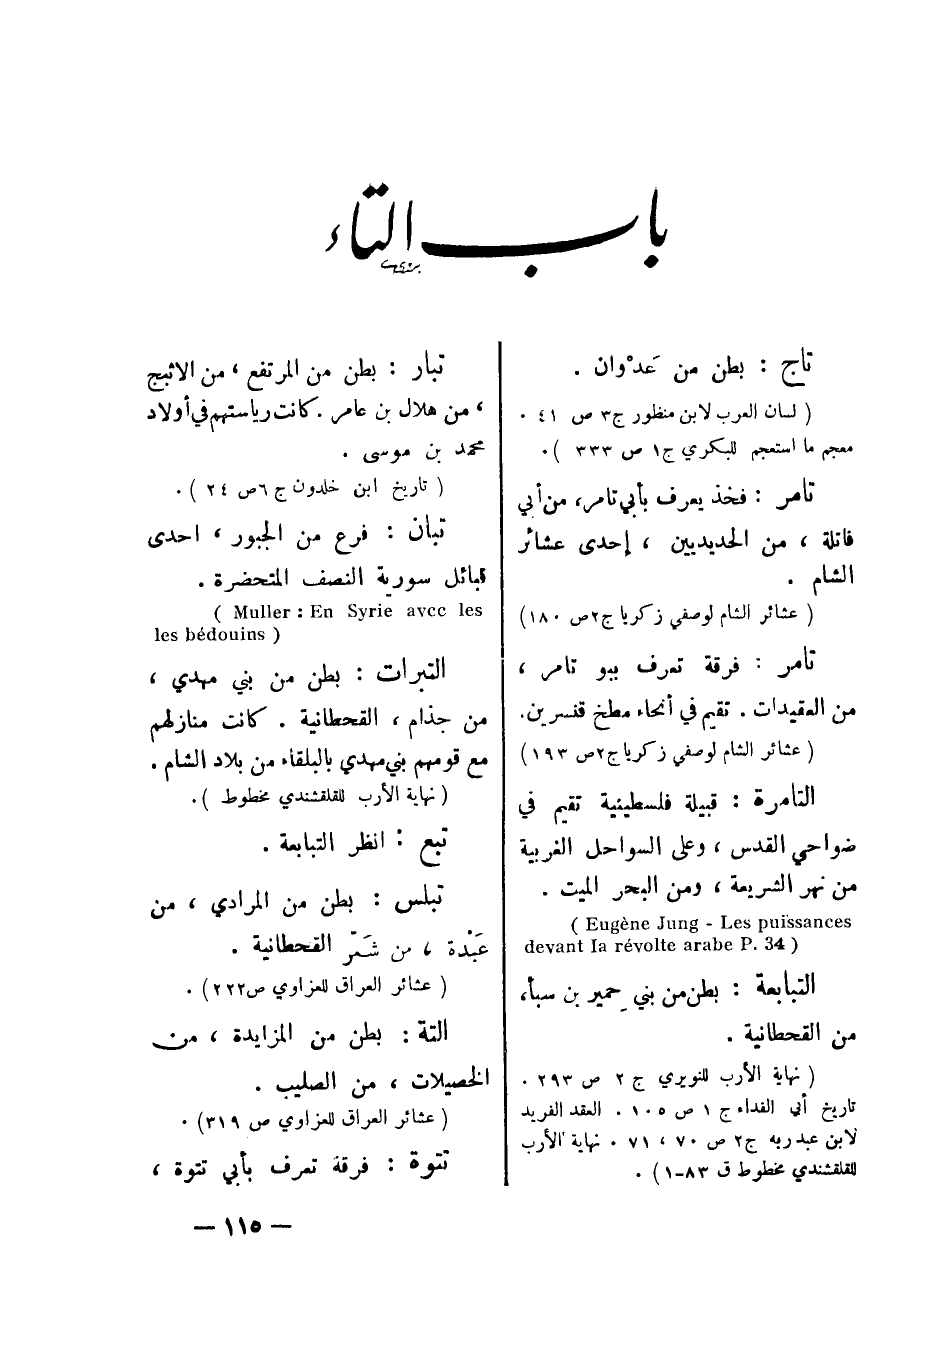 باب التاء
تاج : بطن من عَدْوان .
( لسان العرب لابن منظور ج٣ ص ٤١ .
معجم ما استعجم للبكري ج١ ص ٣٣٣ ) .
تامر : فخذ يعرف بأبي تامر، من أبي
فاتلة ، من الحديديين ، إحدى عشائر
الشام .
( عشائر الشام لوصفي زكريا ج٢ص ١٨٠)
تامر : فرقة تعرف ببو تامر ،
من العقيدات . تقيم في أنحاء مطخ قنسرين.
( عشائر الشام لوصفي زكريا ج٢ص ١٩٣)
التامرة : قبيلة فلسطينية تقيم في
ضواحي القدس ، وعلى السواحل الغربية
من نهر الشريعة ، ومن البحر الميت .
( Eugène Jung - Les puissances
devant la révolte arabe P. 34 )
التبابعة : بطن من بني حمير بن سبأ،
من القحطانية .
( نهاية الأرب للنويري ج ٢ ص ٢٩٣ .
تاريخ أبي الفداء ج ١ ص ١٠٥ . العقد الفريد
لابن عبدربه ج٢ ص ٧٠ ، ٧١ . نهاية الأرب
للقلقشندي مخطوط ق ٨٣-١) .
تبار : بطن من المرتفع ، من الاثبج
، من هلال بن عامر . كانت رياستهم في أولاد
محمد بن موسى .
( تاريخ ابن خلدون ج ٦ص ٢٤ ) .
تبان : فرع من الجبور ، احدى
قبائل سورية النصف المتحضرة .
( Muller : En Syrie avec les
les bédouins )
التبرات : بطن من بني مهدي ،
من جذام ، القحطانية . كانت منازلهم
مع قومهم بني مهدي بالبلقاء من بلاد الشام .
( نهاية الأرب للقلقشندي مخطوط ) .
تبع : انظر التبابعة .
تبلس : بطن من المرادي ، من
عَبْدة ، من شَمّر القحطانية .
( عشائر العراق للعزاوي ص٢٢٢) .
التة : بطن من المزايدة ، من
الخصيلات ، من الصليب .
( عشائر العراق للعزاوي ص ٣١٩) .
تتوة : فرقة تعرف بأبي تتوة ،
— ١١٥ —